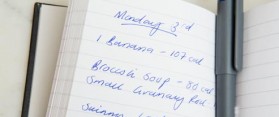 Monday 3rd
1 Banana - 107 cal
Broccoli Soup - 80 cal
Small Granary Roll -
Skinny